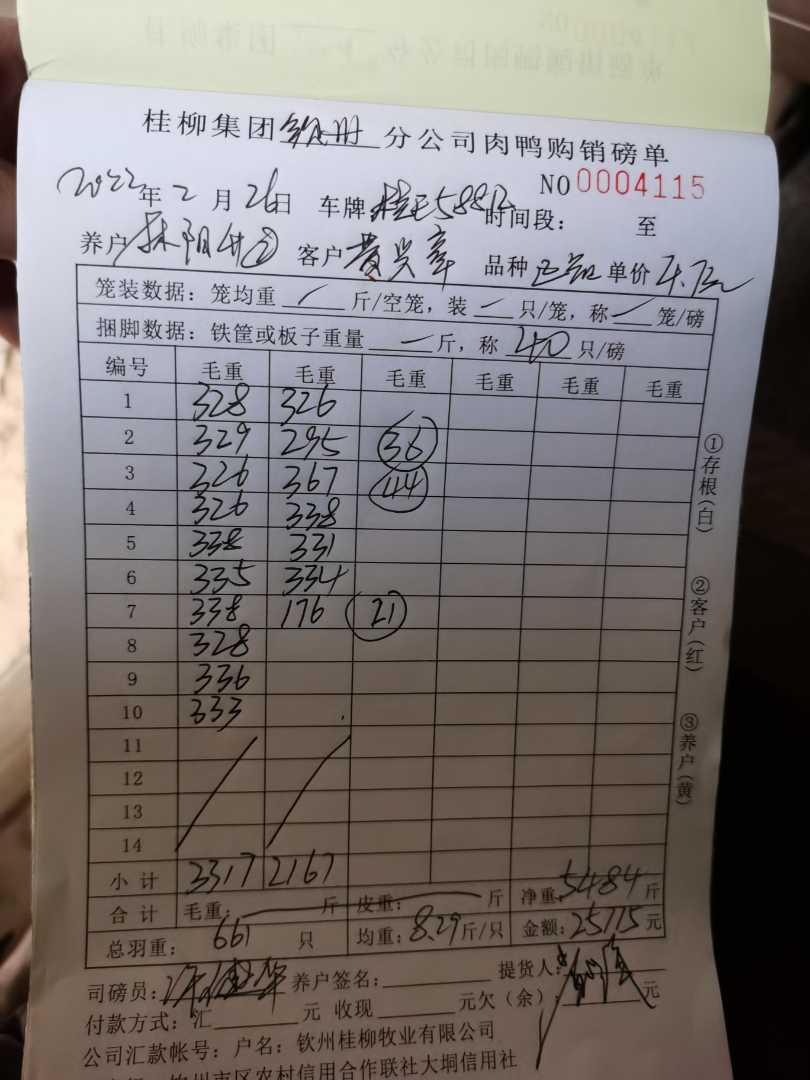 桂柳集团 分公司肉鸭购销磅单
NO 0004115
2022年2月26日 车牌 588 时间段: 至
养户 客户 黄兴章 品种 单价
笼装数据: 笼均重 / 斤/空笼, 装 一 只/笼, 称 一 笼/磅
捆脚数据: 铁筐或板子重量 一 斤, 称 40 只/磅
编号 毛重 毛重 毛重 毛重 毛重 毛重
1 328 326
2 329 295 36
3 326 367 44
4 326 338
5 338 331
6 335 334
7 338 176 21
8 328
9 336
10 333
11
12
13
14
小计 3317 2167
合计 毛重: 斤 皮重: 斤 净重: 5484 斤
总羽重: 661 只 均重: 8.29 斤/只 金额: 25115 元
司磅员: 养户签名: 提货人:
付款方式: 汇 元 收现 元欠(余): 元
公司汇款帐号: 户名: 钦州桂柳牧业有限公司
钦州市区农村信用合作联社大垌信用社
①存根(白) ②客户(红) ③养户(黄)